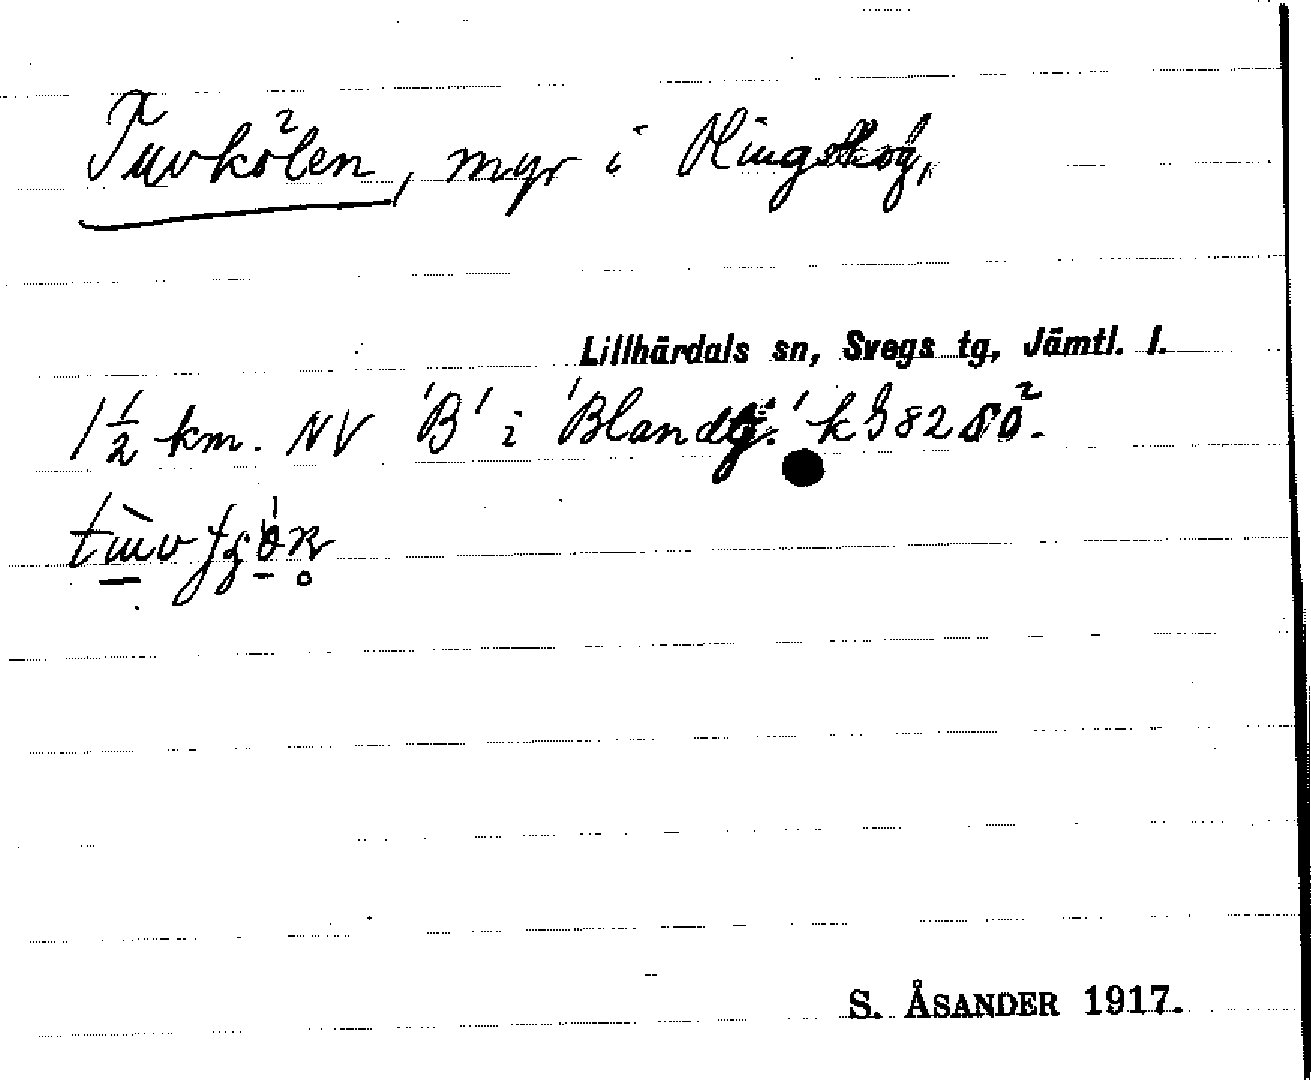 Tuvkölen, myr i Ringskog,
Lillhärdals sn, Svegs tg, Jämtl. l.
1 1/2 km. NV 'B' i 'Blandg.' k
S. ÅSANDER 1917.